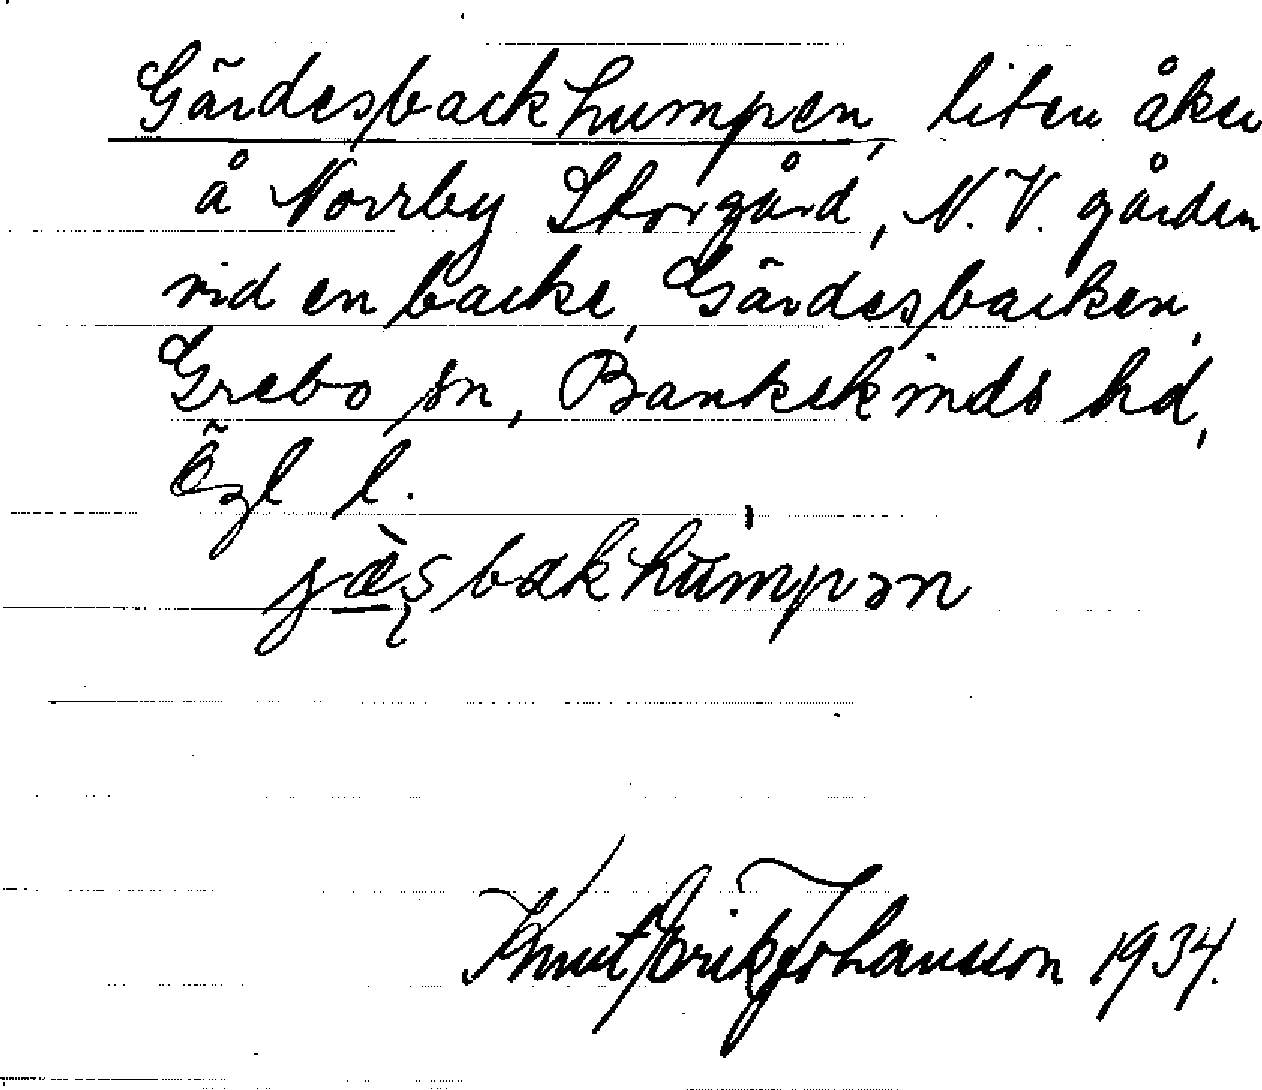 Gärdesbackhumpen, liten åker
å Norrby Storgård, N.V. gården
vid en backe, Gärdesbacken,
Grebo sn, Bankekinds hd,
Ögl l.
jæ̀sbakhumpən
Knut Erik Johansson 1934.